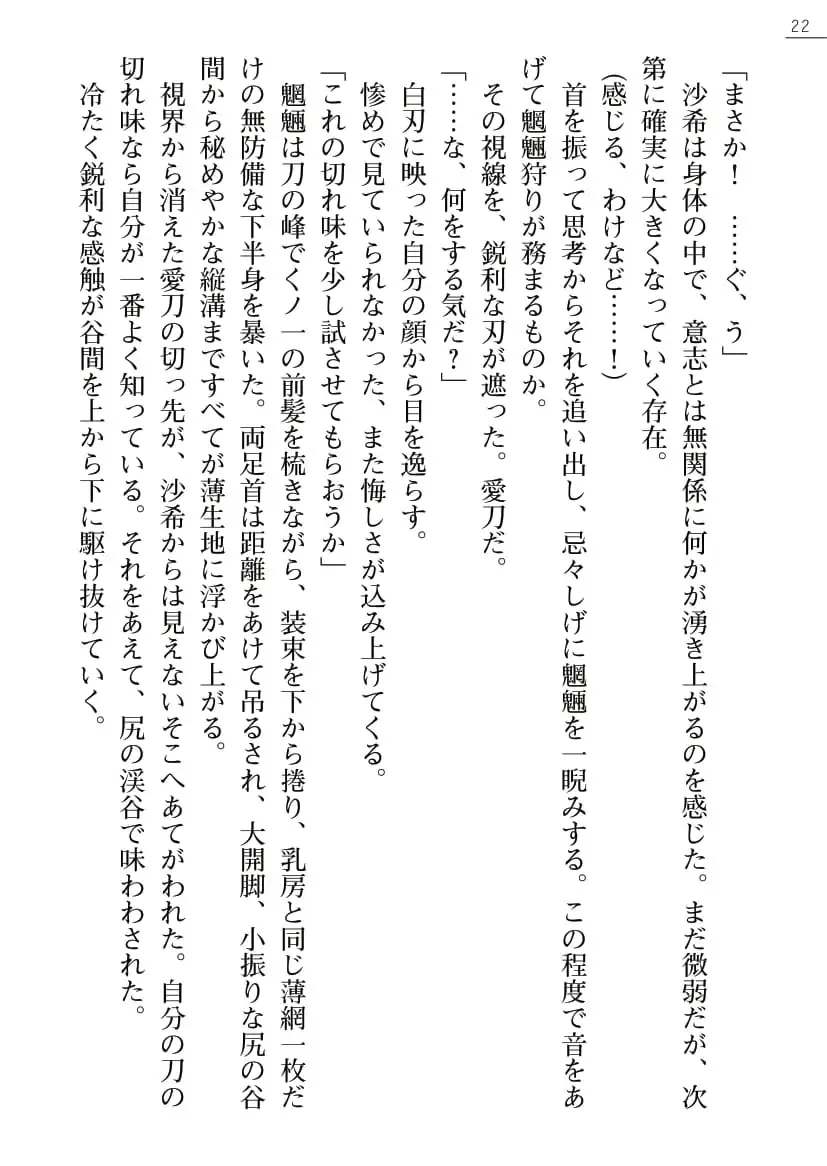 22
「まさか！　……ぐ、う」
　沙希は身体の中で、意志とは無関係に何かが湧き上がるのを感じた。まだ微弱だが、次
第に確実に大きくなっていく存在。
（感じる、わけなど……！）
　首を振って思考からそれを追い出し、忌々しげに魍魎を一睨みする。この程度で音をあ
げて魍魎狩りが務まるものか。
　その視線を、鋭利な刃が遮った。愛刀だ。
「……な、何をする気だ？」
　白刃に映った自分の顔から目を逸らす。
　惨めで見ていられなかった、また悔しさが込み上げてくる。
「これの切れ味を少し試させてもらおうか」
　魍魎は刀の峰でくノ一の前髪を梳きながら、装束を下から捲り、乳房と同じ薄網一枚だ
けの無防備な下半身を暴いた。両足首は距離をあけて吊るされ、大開脚、小振りな尻の谷
間から秘めやかな縦溝まですべてが薄生地に浮かび上がる。
　視界から消えた愛刀の切っ先が、沙希からは見えないそこへあてがわれた。自分の刀の
切れ味なら自分が一番よく知っている。それをあえて、尻の渓谷で味わわされた。
　冷たく鋭利な感触が谷間を上から下に駆け抜けていく。